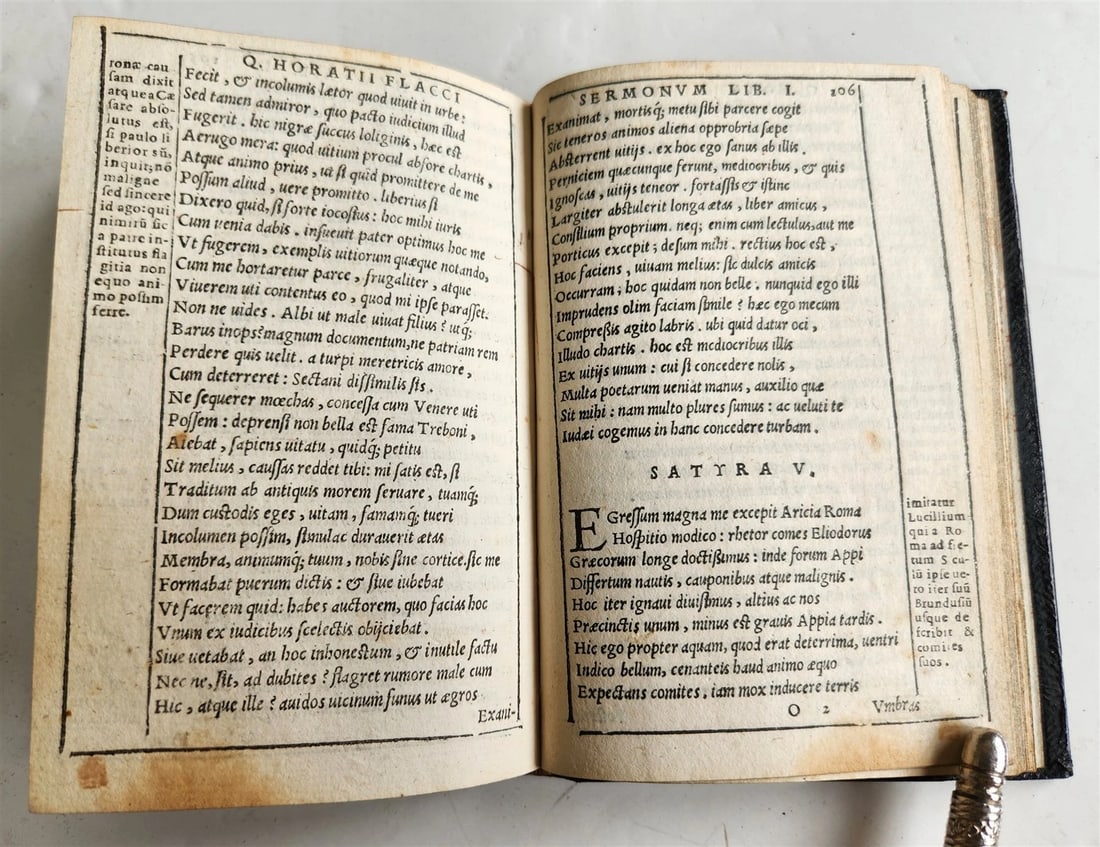 Q. HORATII FLACCI
ronæ cau
sam dixit
atque a Cæ
sare abso-
lutus est,
si paulo li
berior sū,
inquit, nō
maligne
sed sincere
id ago: qui
nimirū sic
a patre in-
stitutus fla
gitia non
equo ani-
mo possim
ferre.
Fecit, & incolumis lætor quod uiuit in urbe:
Sed tamen admiror, quo pacto iudicium illud
Fugerit. hic nigræ succus loliginis, hæc est
Aerugo mera: quod uitium procul abfore chartis,
Atque animo prius, ut si quid promittere de me
Possum aliud, uere promitto. liberius si
Dixero quid, si forte iocosius: hoc mihi iuris
Cum uenia dabis. insueuit pater optimus hoc me
Vt fugerem, exemplis uitiorum quæque notando,
Cum me hortaretur parce, frugaliter, atque
Viuerem uti contentus eo, quod mi ipse parasset.
Non ne uides. Albi ut male uiuat filius? utq;
Barus inops? magnum documentum, ne patriam rem
Perdere quis uelit. a turpi meretricis amore,
Cum deterreret: Sectani dissimilis sis.
Ne sequerer mœchas, concessa cum Venere uti
Possem: deprensi non bella est fama Treboni,
Aiebat, sapiens uitatu, quidq; petitu
Sit melius, caussas reddet tibi: mi satis est, si
Traditum ab antiquis morem seruare, tuamq;
Dum custodis eges, uitam, famamq; tueri
Incolumen possim, simulac durauerit ætas
Membra, animumq; tuum, nobis sine cortice. sic me
Formabat puerum dictis: & siue iubebat
Vt facerem quid: habes auctorem, quo facias hoc
Vnum ex iudicibus scelectis obijciebat.
Siue uetabat, an hoc inhonestum, & inutile factu
Nec ne, sit, ad dubites? flagret rumore male cum
Hic, atque ille? auidos uicinum funus ut ægros
Exani-
SERMONVM LIB. I. 106
Exanimat, mortisq; metu sibi parcere cogit
Sic teneros animos aliena opprobria sæpe
Absterrent uitijs. ex hoc ego sanus ab illis.
Perniciem quæcunque ferunt, mediocribus, & quis
Ignoscas, uitijs teneor. fortassis & istinc
Largiter abstulerit longa ætas, liber amicus,
Consilium proprium. neq; enim cum lectulus, aut me
Porticus excepit; desum mihi. rectius hoc est,
Hoc faciens, uiuam melius: sic dulcis amicis
Occurram; hoc quidam non belle. nunquid ego illi
Imprudens olim faciam simile? hæc ego mecum
Compressis agito labris. ubi quid datur oci,
Illudo chartis. hoc est mediocribus illis
Ex uitijs unum: cui si concedere nolis,
Multa poetarum ueniat manus, auxilio quæ
Sit mihi: nam multo plures sumus: ac ueluti te
Iudæi cogemus in hanc concedere turbam.
SATYRA V.
EGressum magna me excepit Aricia Roma
Hospitio modico: rhetor comes Eliodorus
Græcorum longe doctissimus: inde forum Appi
Differtum nautis, cauponibus atque malignis.
Hoc iter ignaui diuisimus, altius ac nos
Præcinctis unum, minus est grauis Appia tardis.
Hic ego propter aquam, quod erat deterrima, uentri
Indico bellum, cenanteis haud animo æquo
Expectans comites. iam mox inducere terris
imitatur
Lucillium
qui a Ro
ma ad fre-
tum S cu-
iū ipse ue-
ro iter suū
Brundusiū
usque de
scribit &
comites
suos.
O 2 Vmbras